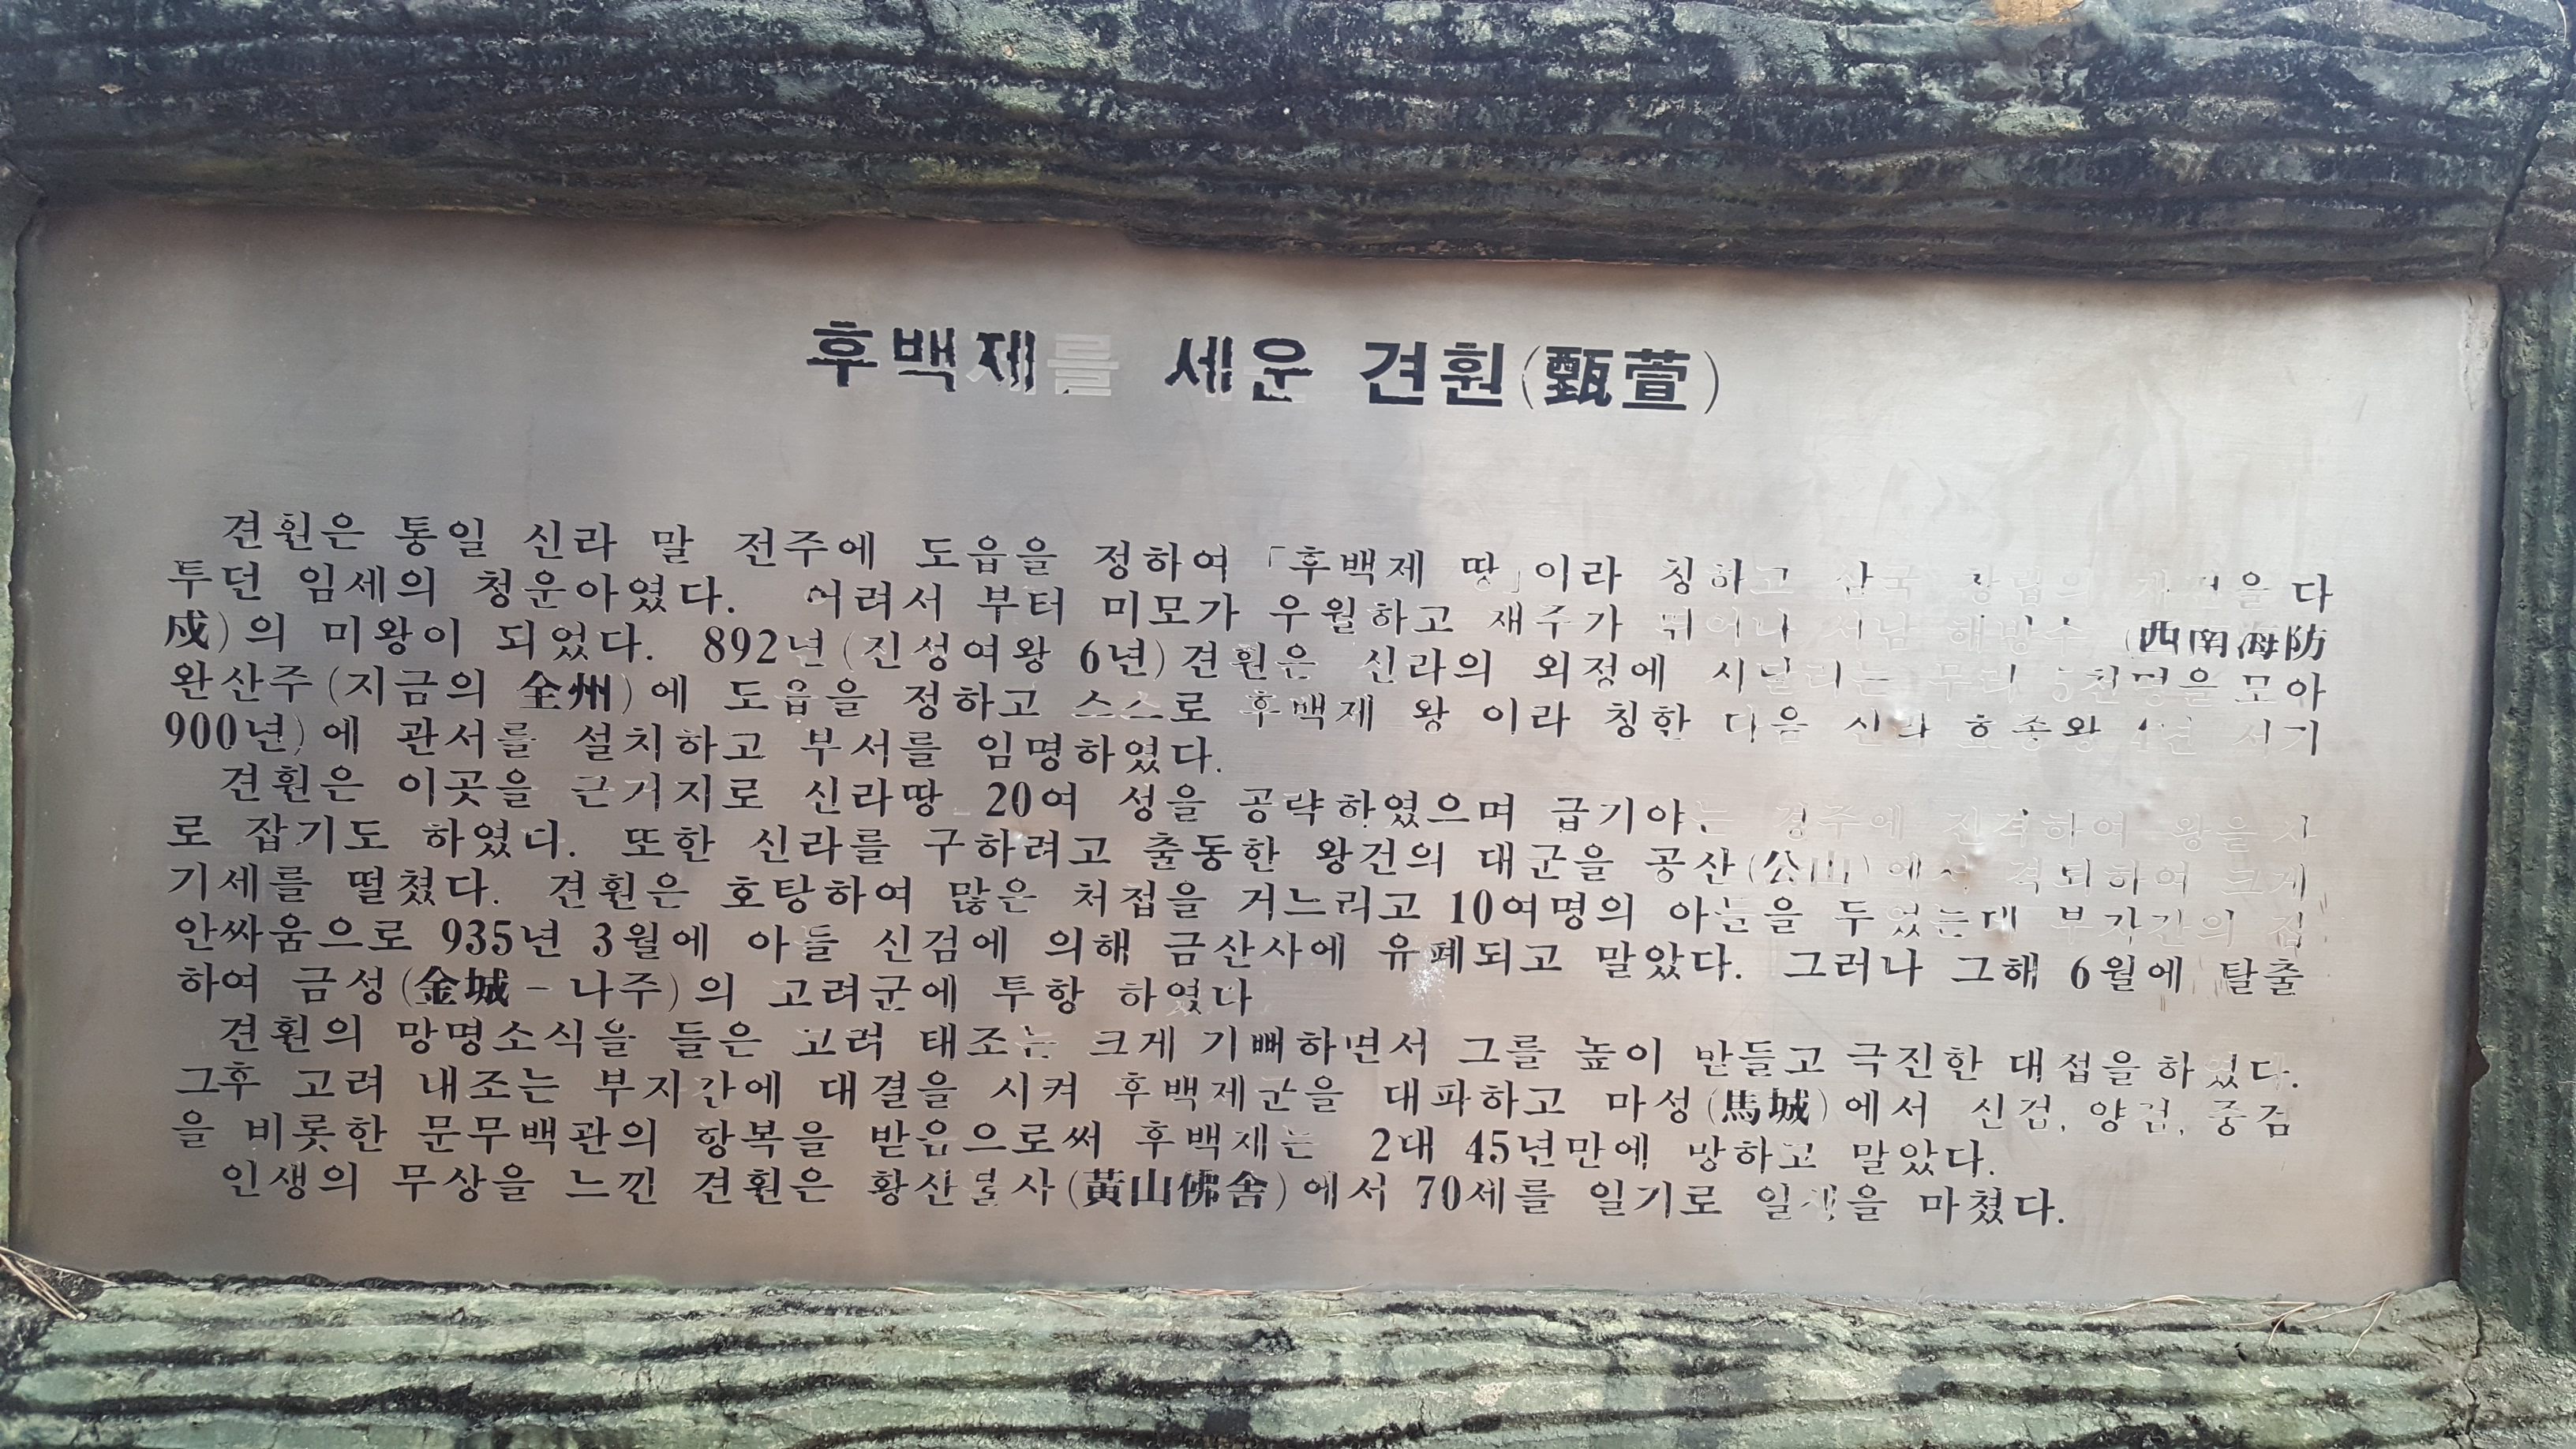 후백제를 세운 견훤(甄萱)
견훤은 통일 신라 말 전주에 도읍을 정하여 「후백제 땅」이라 칭하고 삼국 을 다
투던 임세의 청운아였다. 어려서 부터 미모가 우월하고 재주가 뛰어나 서남 해방수 (西南海防
戍)의 미왕이 되었다. 892년(진성여왕 6년)견훤은 신라의 외정에 시달리는 무리 5천명을 모아
완산주(지금의 全州)에 도읍을 정하고 스스로 후백제 왕 이라 칭한 다음 신라 효종왕 4년 서기
900년)에 관서를 설치하고 부서를 임명하였다.
견훤은 이곳을 근거지로 신라땅 20여 성을 공략하였으며 급기야는 경주에 진격하여 왕을 사
로 잡기도 하였다. 또한 신라를 구하려고 출동한 왕건의 대군을 공산(公山)에서 격퇴하여 크게
기세를 떨쳤다. 견훤은 호탕하여 많은 처첩을 거느리고 10여명의 아들을 두었는데 부자간의 집
안싸움으로 935년 3월에 아들 신검에 의해 금산사에 유폐되고 말았다. 그러나 그해 6월에 탈출
하여 금성(金城-나주)의 고려군에 투항 하였다
견훤의 망명소식을 들은 고려 태조는 크게 기뻐하면서 그를 높이 받들고 극진한 대접을 하였다.
그후 고려 태조는 부자간에 대결을 시켜 후백제군을 대파하고 마성(馬城)에서 신검, 양검, 중검
을 비롯한 문무백관의 항복을 받음으로써 후백제는 2대 45년만에 망하고 말았다.
인생의 무상을 느낀 견훤은 황산불사(黃山佛舍)에서 70세를 일기로 일생을 마쳤다.